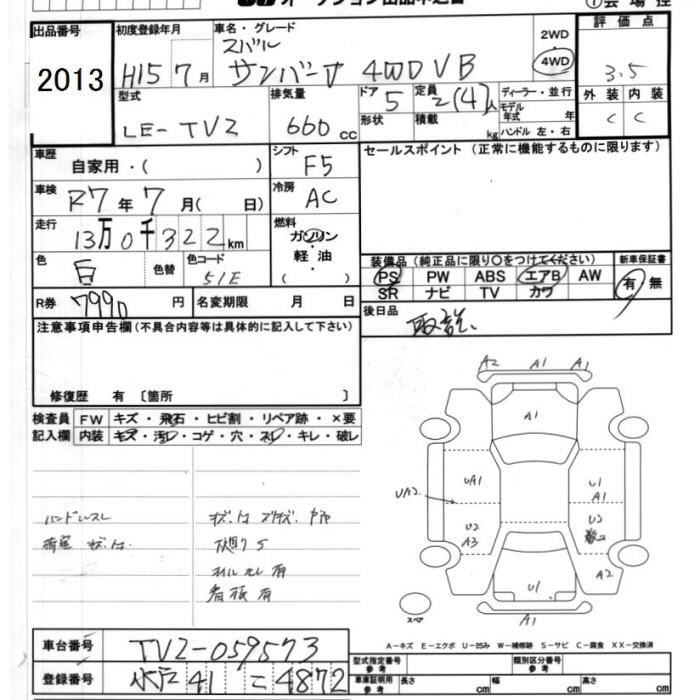 オークション出品申込書 ①会場控
出品番号 初度登録年月 車名・グレード 評価点
2013 H15 7月 スバル サンバー 4WD VB 2WD 4WD 3.5
型式 排気量 ドア 定員 ディーラー・並行 外装 内装
LE-TV2 660cc 5 2(4)人 モデル年式 年 C C
形状 積載 kg ハンドル 左・右
車歴 シフト セールスポイント (正常に機能するものに限ります)
自家用・( ) F5
車検 R7年 7月( 日) 冷房 AC
走行 13万0千322km 燃料 ガソリン・軽油・( )
色 白 色替 色コード 51E 装備品 (純正品に限り○をつけてください) 新車保証書
PS PW ABS エアB AW 有・無
SR ナビ TV カワ
R券 7990円 名変期限 月 日 後日品
取説、
注意事項申告欄 (不具合内容等は具体的に記入して下さい)
修復歴 有 〔箇所 〕
A2 A1 A1
検査員 FW キズ・飛石・ヒビ割・リペア跡・×要
記入欄 内装 キズ・汚レ・コゲ・穴・スレ・キレ・破レ
A1
UA1 U1
UA2 A1
ハンドルスレ
U2 U2
A3
荷室
下廻り S
A2
オイルモレ有
看板有
U1
スペア A1
A-キズ E-エクボ U-凹み W-補修跡 S-サビ C-腐食 XX-交換済
車台番号 TV2-059573 型式指定番号 参考 類別区分番号 参考
登録番号 水戸 41 こ 4872 車庫証明用 参考 長さ cm 幅 cm 高さ cm